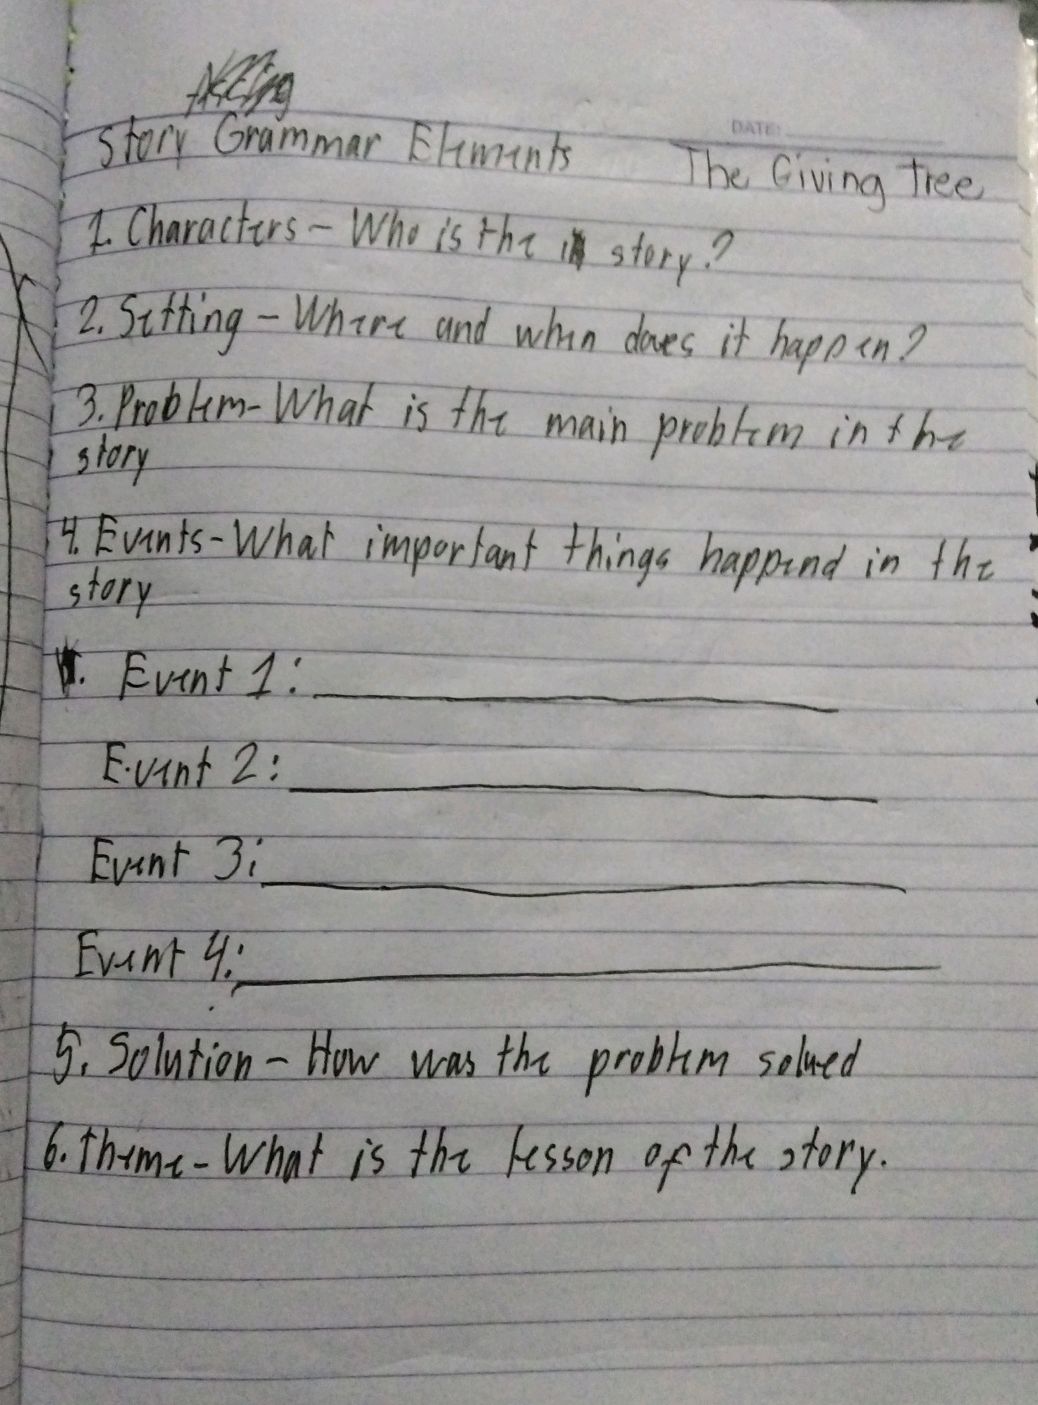 Story Grammar Elements
DATE:
The Giving Tree
1. Characters - Who is the story?
2. Setting - Where and when does it happen?
3. Problem - What is the main problem in the
story
4. Events - What important things happend in the
story
Event 1:
Event 2:
Event 3:
Event 4:
5. Solution - How was the problem solved
6. Theme - What is the lesson of the story.